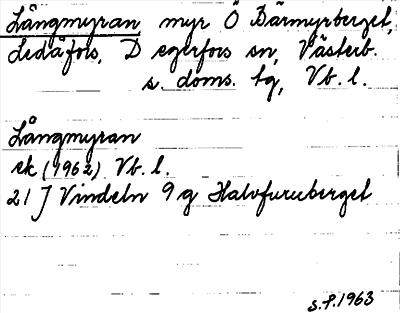 Långmyran myr Ö Bärmyrberget,
Ledåfors, Degerfors sn, Västerb.
s. doms. tg, Vb. l.
Långmyran
ek (1962) Vb. l.
21J Vindeln 9g Halvfuruberget
S.P. 1963